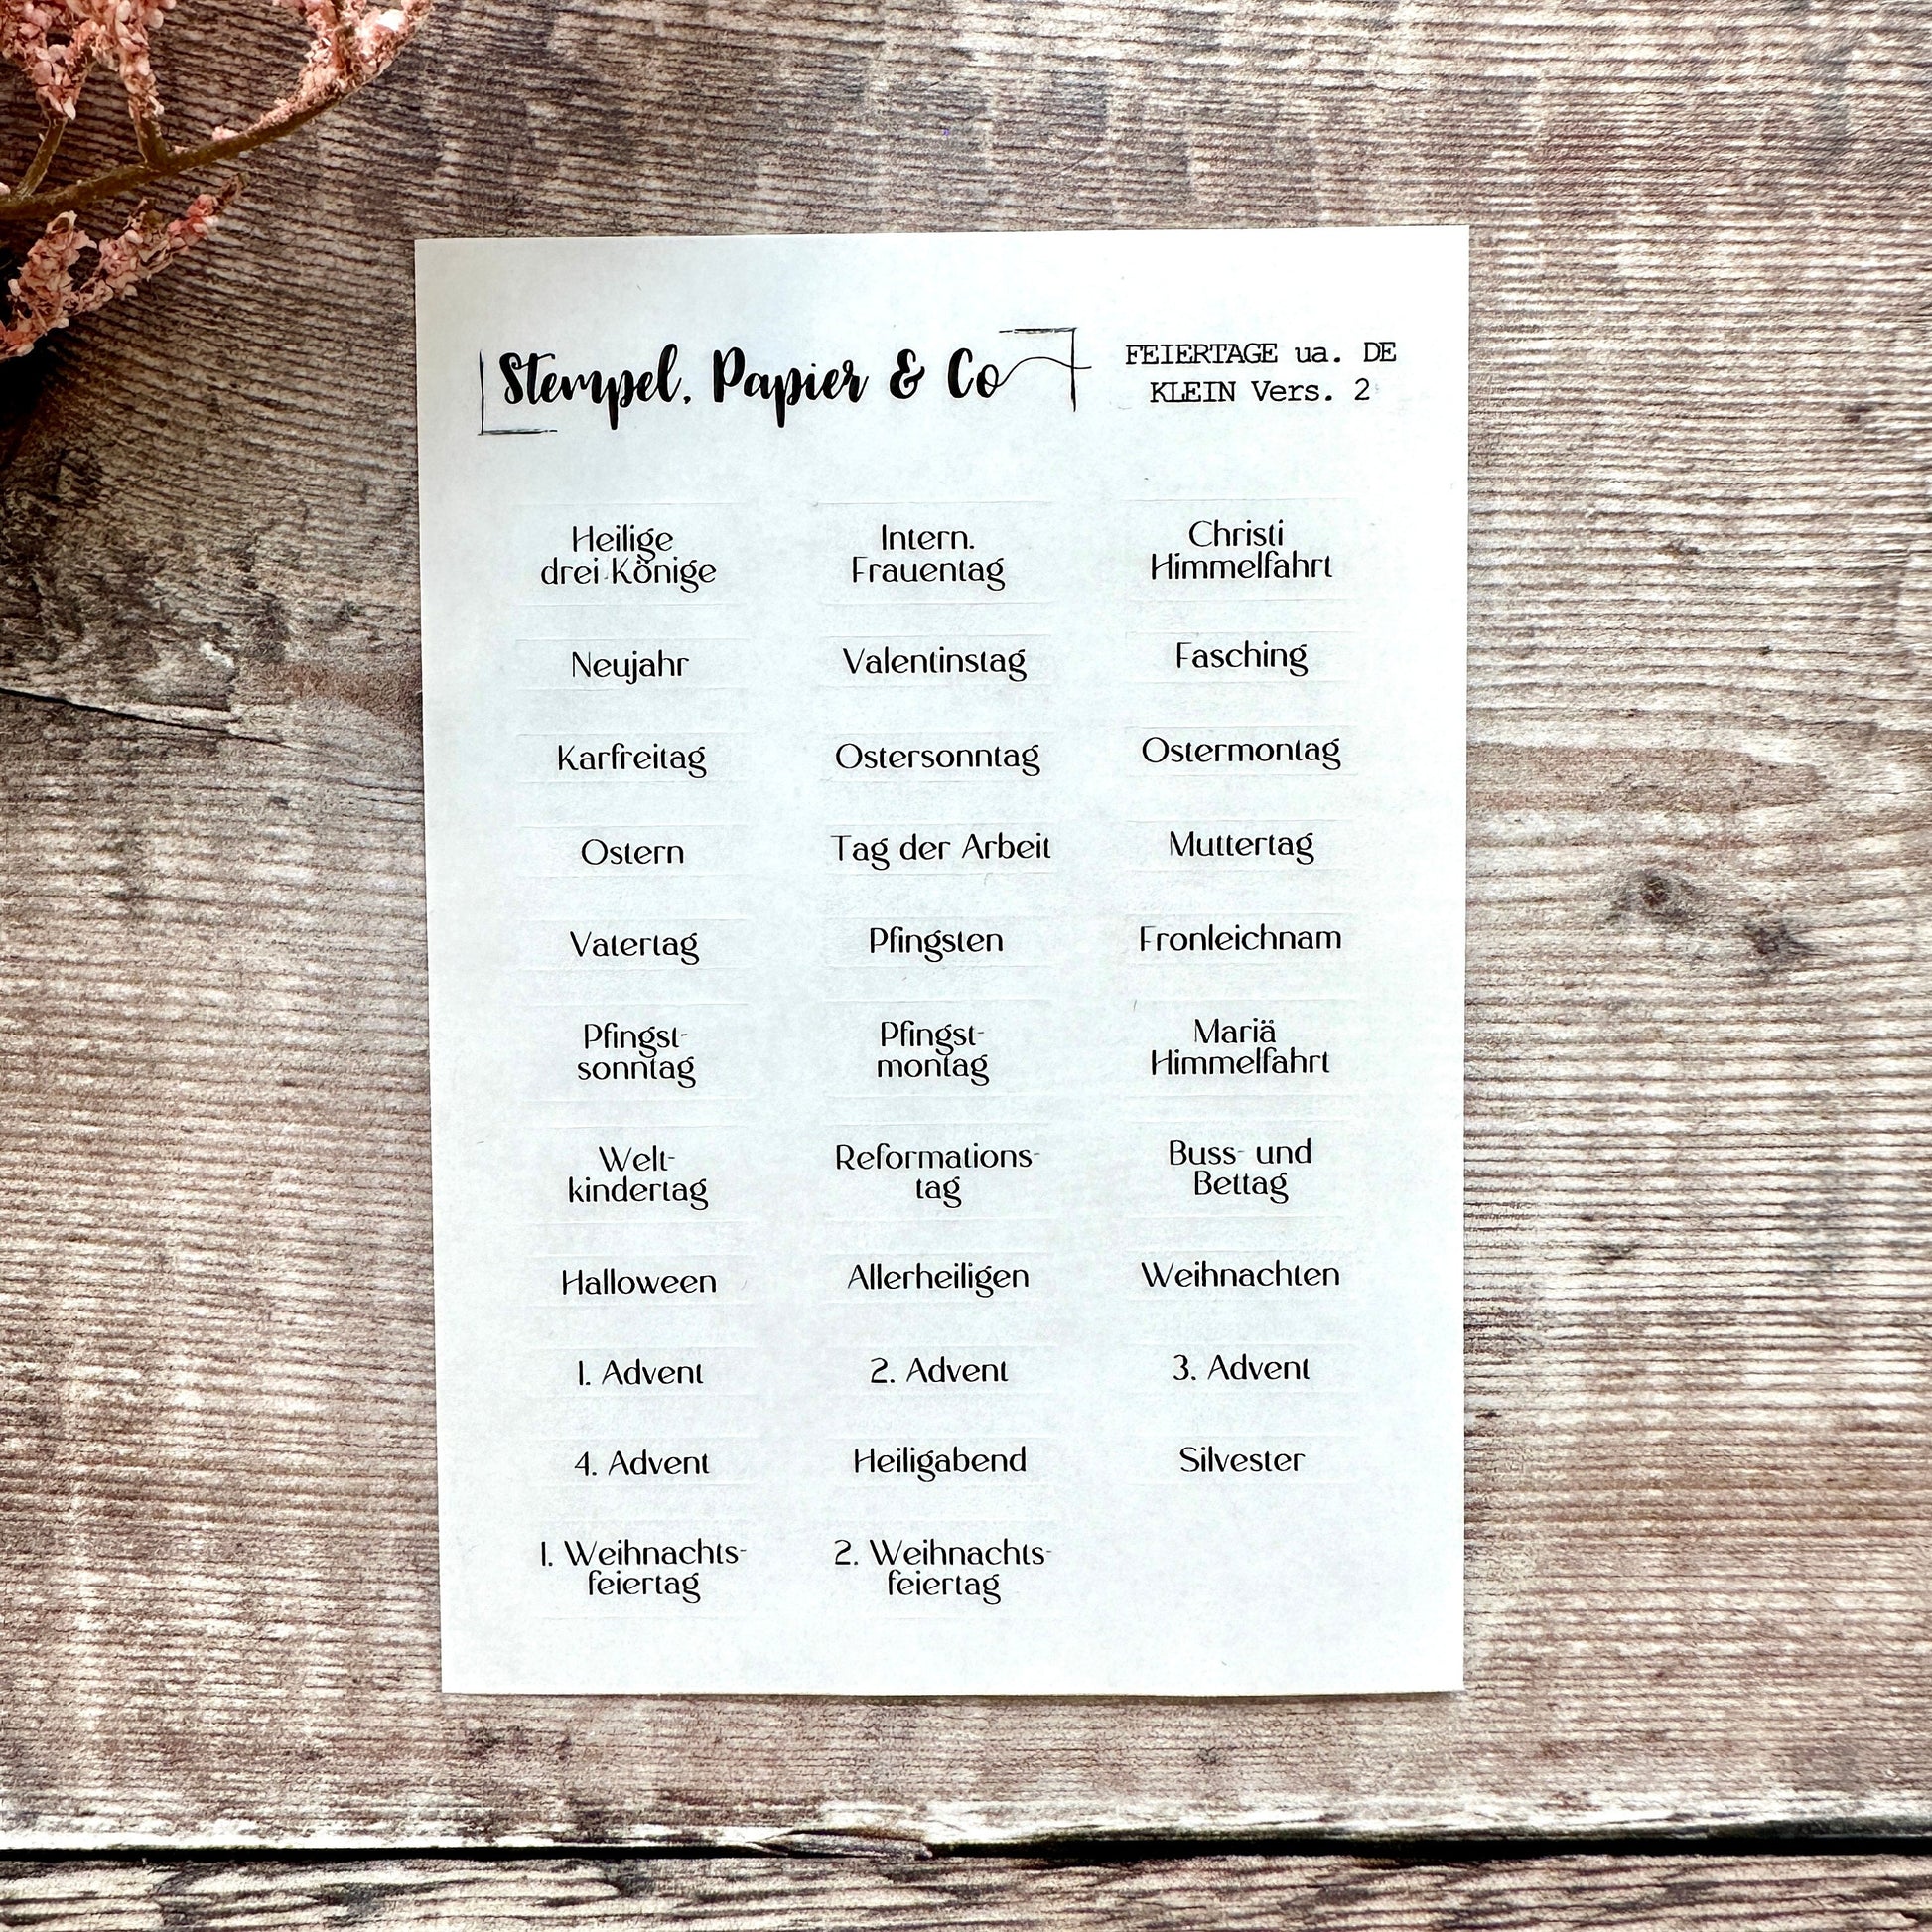 Stempel, Papier & Co
FEIERTAGE ua. DE
KLEIN Vers. 2
Heilige
drei Könige
Intern.
Frauentag
Christi
Himmelfahrt
Neujahr
Valentinstag
Fasching
Karfreitag
Ostersonntag
Ostermontag
Ostern
Tag der Arbeit
Muttertag
Vatertag
Pfingsten
Fronleichnam
Pfingst-
sonntag
Pfingst-
montag
Mariä
Himmelfahrt
Welt-
kindertag
Reformations-
tag
Buss- und
Bettag
Halloween
Allerheiligen
Weihnachten
1. Advent
2. Advent
3. Advent
4. Advent
Heiligabend
Silvester
1. Weihnachts-
feiertag
2. Weihnachts-
feiertag